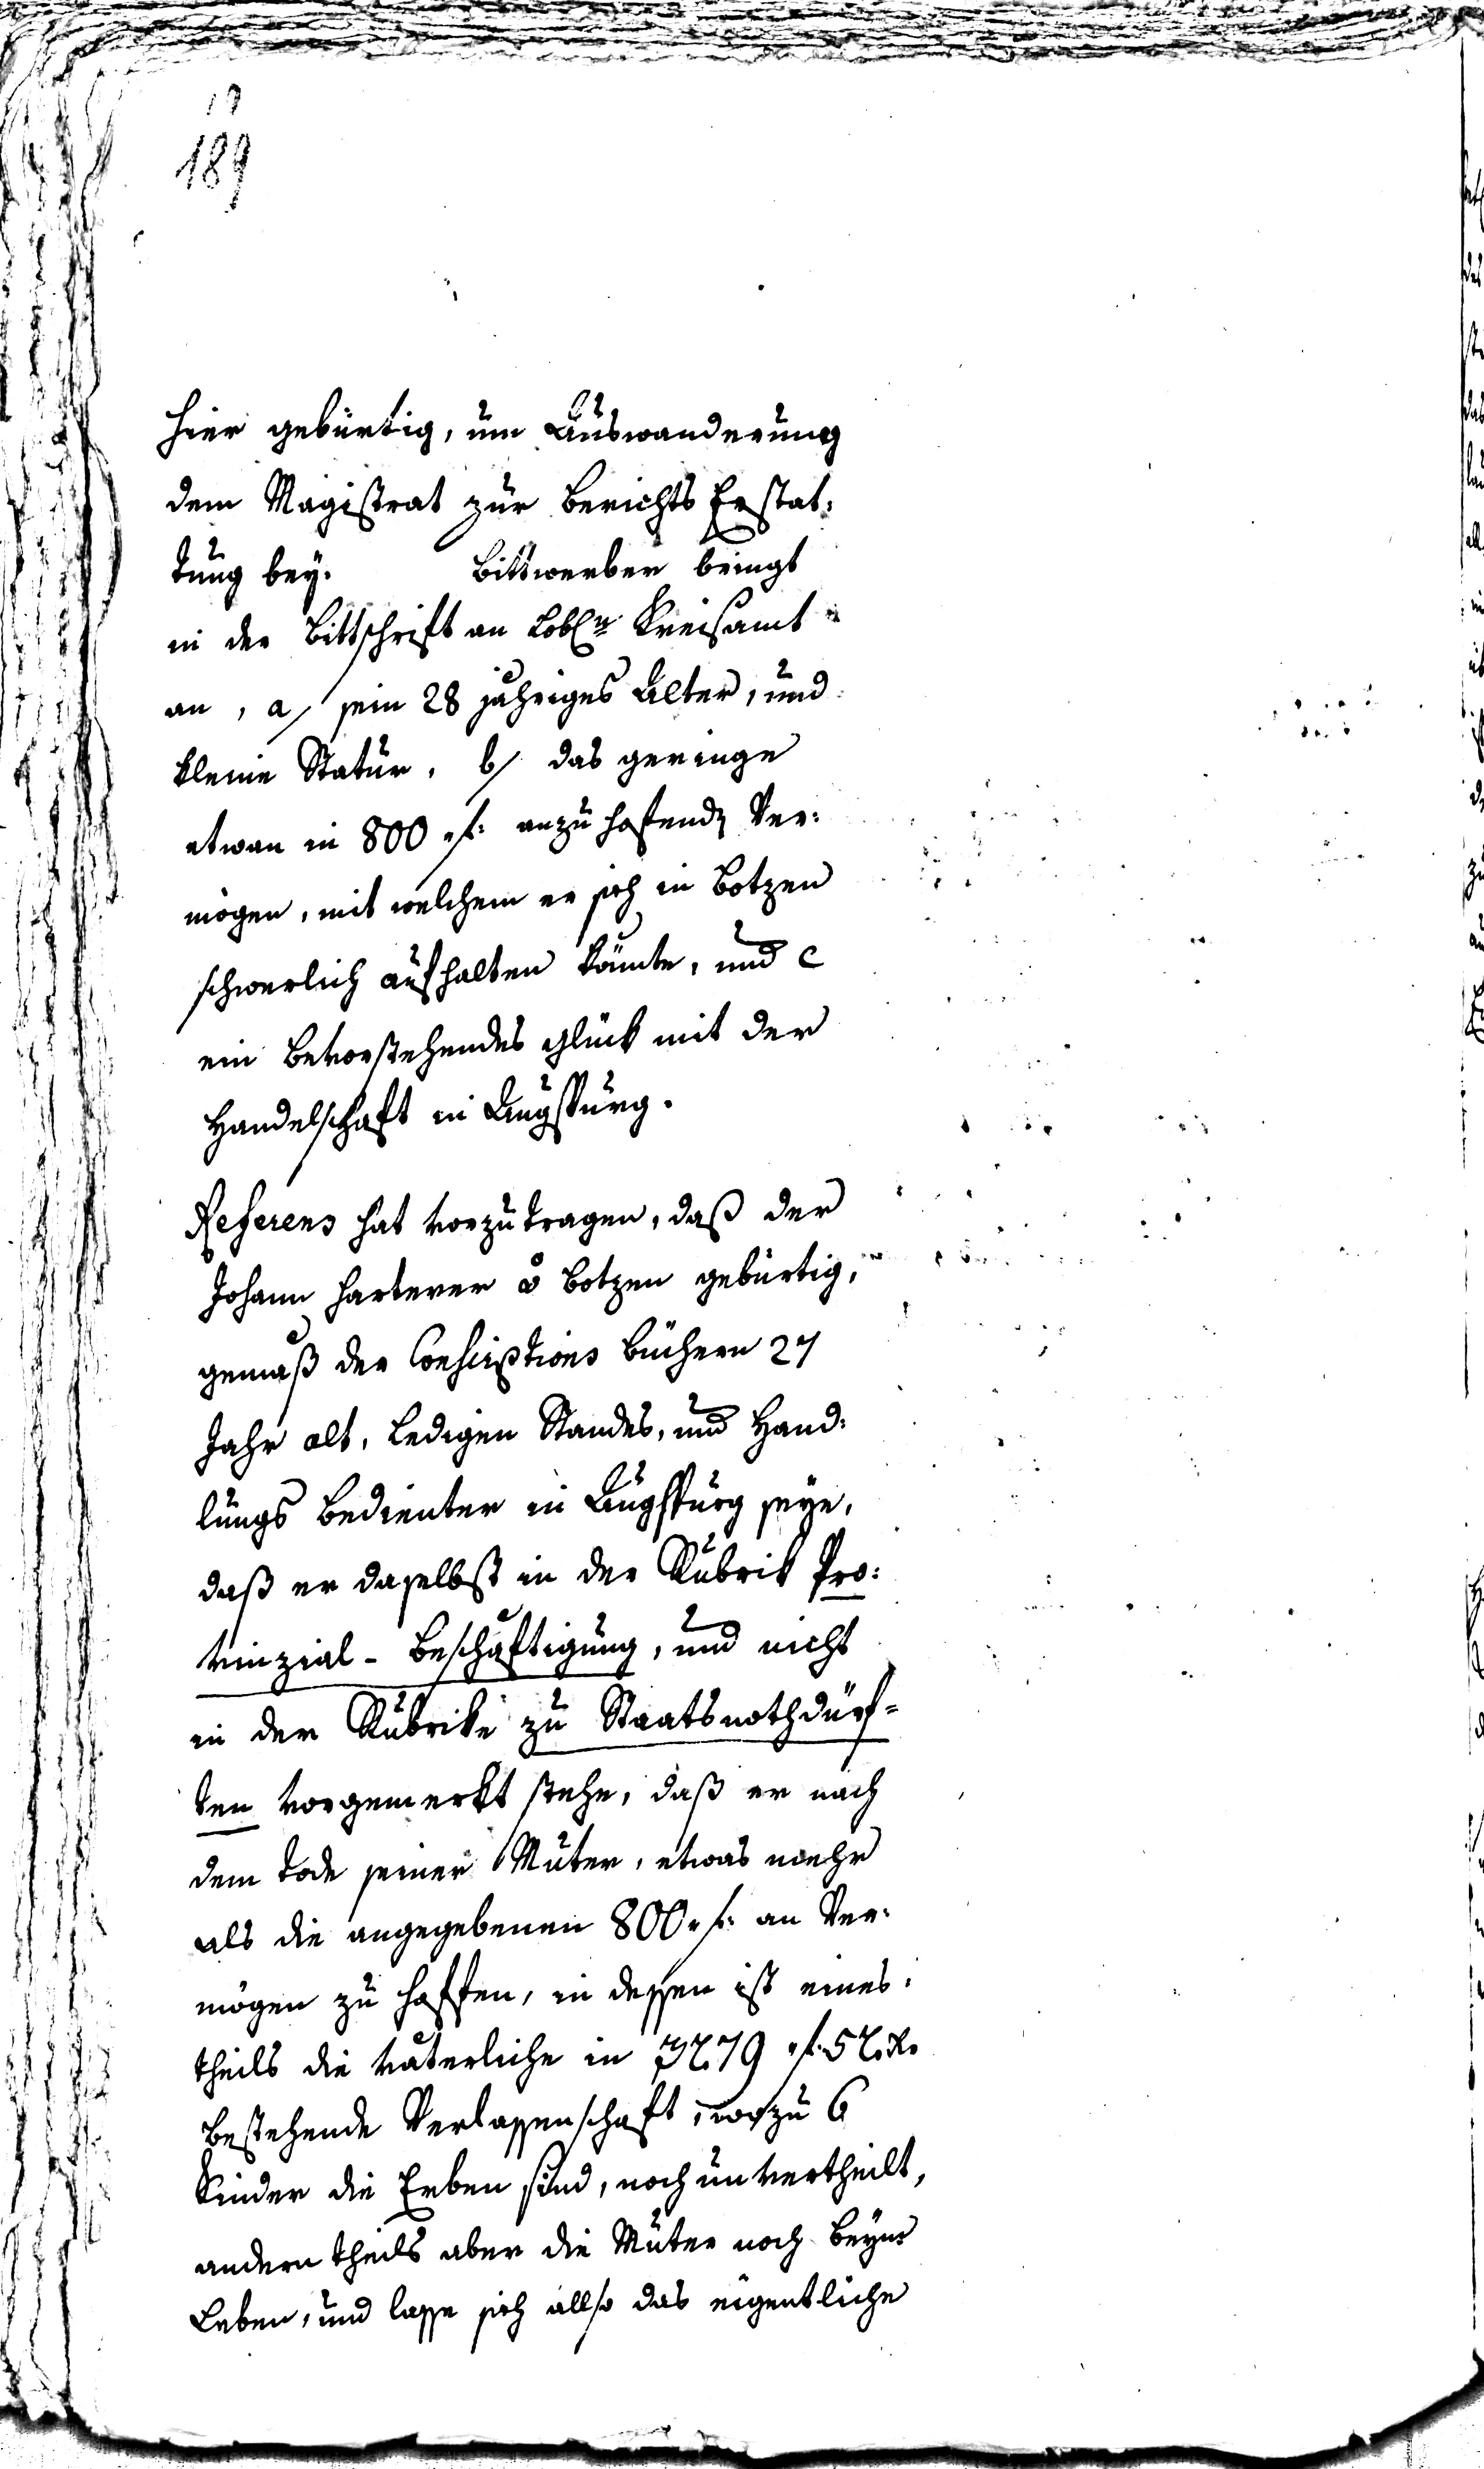 189
hier gebürtig, um Auswanderung
dem Magistrat zur Berichts Erstat:
tung bey. Bittwerber bringt
in der Bittschrift an Lobl. Kreisamt
an, a/ sein 28 jähriges Alter, und
kleine Statur, b/ das geringe
etwan in 800 f: anzuhofende Ver:
mögen, mit welchem er sich in Botzen
schwerlich aufhalten könnte, und c
ein bevorstehendes Glück mit der
Handelschaft in Augspurg.
Referens hat vorzutragen, daß der
Johann Harterer v Botzen gebürtig,
gemäß der Conscriptions Büchern 27
Jahr alt, Ledigen Standes, und Hand:
lungs Bedienter in Augspurg seye,
daß er daselbst in der Rubrik Pro:
vinzial-Beschäftigung, und nicht
in der Rubrike zu Staatsnothdürf=
ten vorgemerkt stehe, daß er nach
dem Tode seiner Muter, etwas mehr
als die angegebenen 800 f: an Ver:
mögen zu hoffen, in dessen ist eines:
theils die väterliche in 3279 f. 52 x.
bestehende Verlassenschaft, wozu 6
Kinder die Erben sind, noch unvertheilt,
andern theils aber die Muter noch beym
Leben, und lasse sich allso das eigentliche